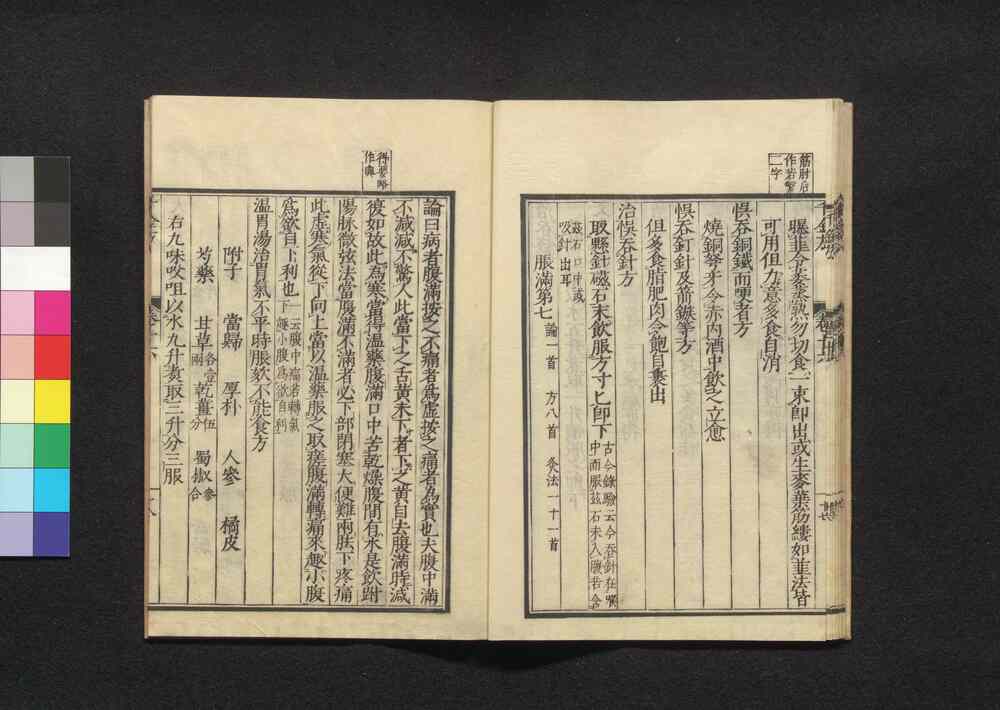 曝韮令萎蒸熟勿切食一束卽出或生麥葉筋縷如韮法皆
可用但力意多食自消
悞吞銅鐵而哽者方
燒銅弩牙令赤內酒中飲之立愈
悞吞釘針及箭鏃等方
但多食脂肥肉令飽自裹出
治悞吞針方
取懸針磁石末飲服方寸匕卽下
古今錄驗云今吞針在喉
中而服磁石末入腹若含
磁石口中或
吸針出耳
脹滿第七 論一首 方八首 灸法一十一首
論曰病者腹滿按之不痛者爲虛按之痛者爲實也夫腹中滿
不減減不驚人此當下之舌黃未下者下之黃自去腹滿時減
復如故此爲寒當得溫藥腹滿口中苦乾燥腹間有水是飲
陽脉微弦法當腹滿不滿者必下部閉塞大便難兩胠下疼痛
此虛寒氣從下向上當以溫藥服之取瘥腹滿轉痛來趣小腹
爲欲自下利也
一云腹中痛若轉氣
下趣小腹爲欲自利
溫胃湯治胃氣不平時脹欬不能食方
附子 當歸 厚朴 人參 橘皮
芍藥 甘草各壹兩 乾薑伍分 蜀椒參合
右九味㕮咀以水九升煑取三升分三服